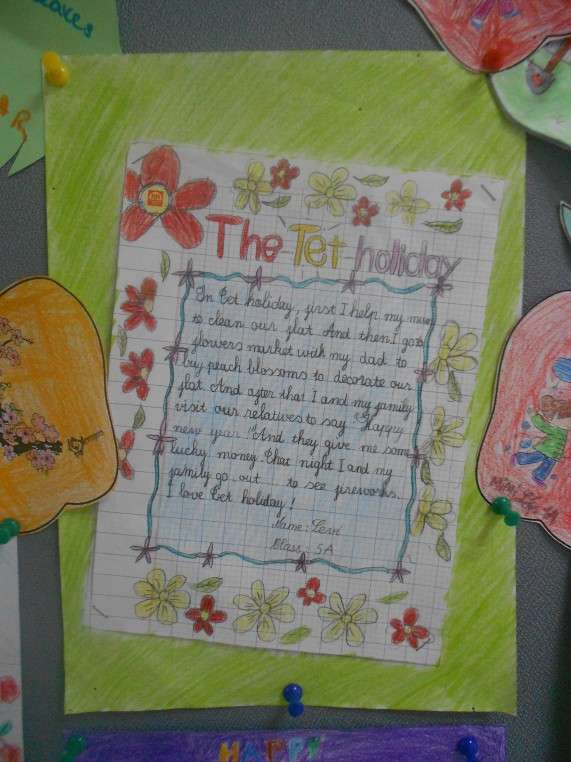 The Tet holiday
In Tet holiday, first I help my mum
to clean our flat. And then I go to
flowers market with my dad to
buy peach blossoms to decorate our
flat. And after that I and my family
visit our relatives to say "Happy
new year" And they give me some
lucky money. That night I and my
family go out to see fireworks.
I love Tet holiday!
Name:
Class: 5A
HAPPY